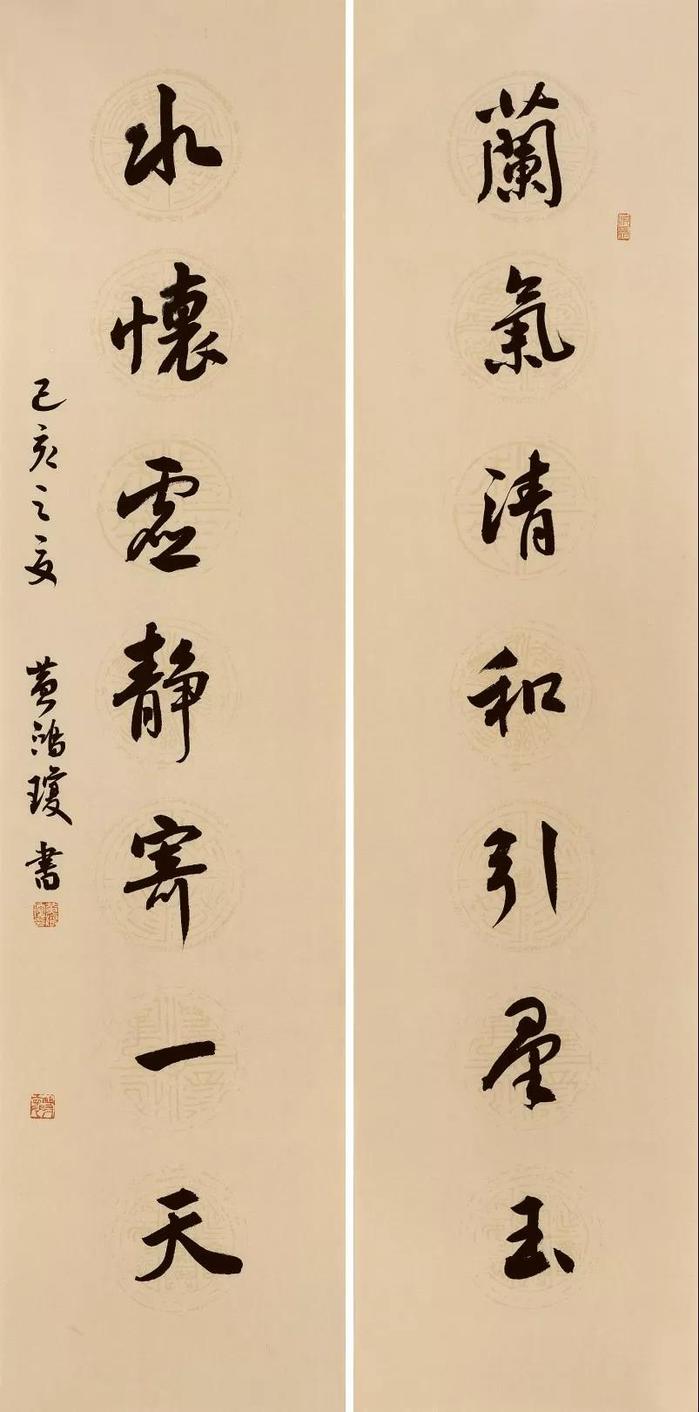 蘭氣清和引星玉
水懷虛靜寄一天
己亥之夏 黄鴻瓊書